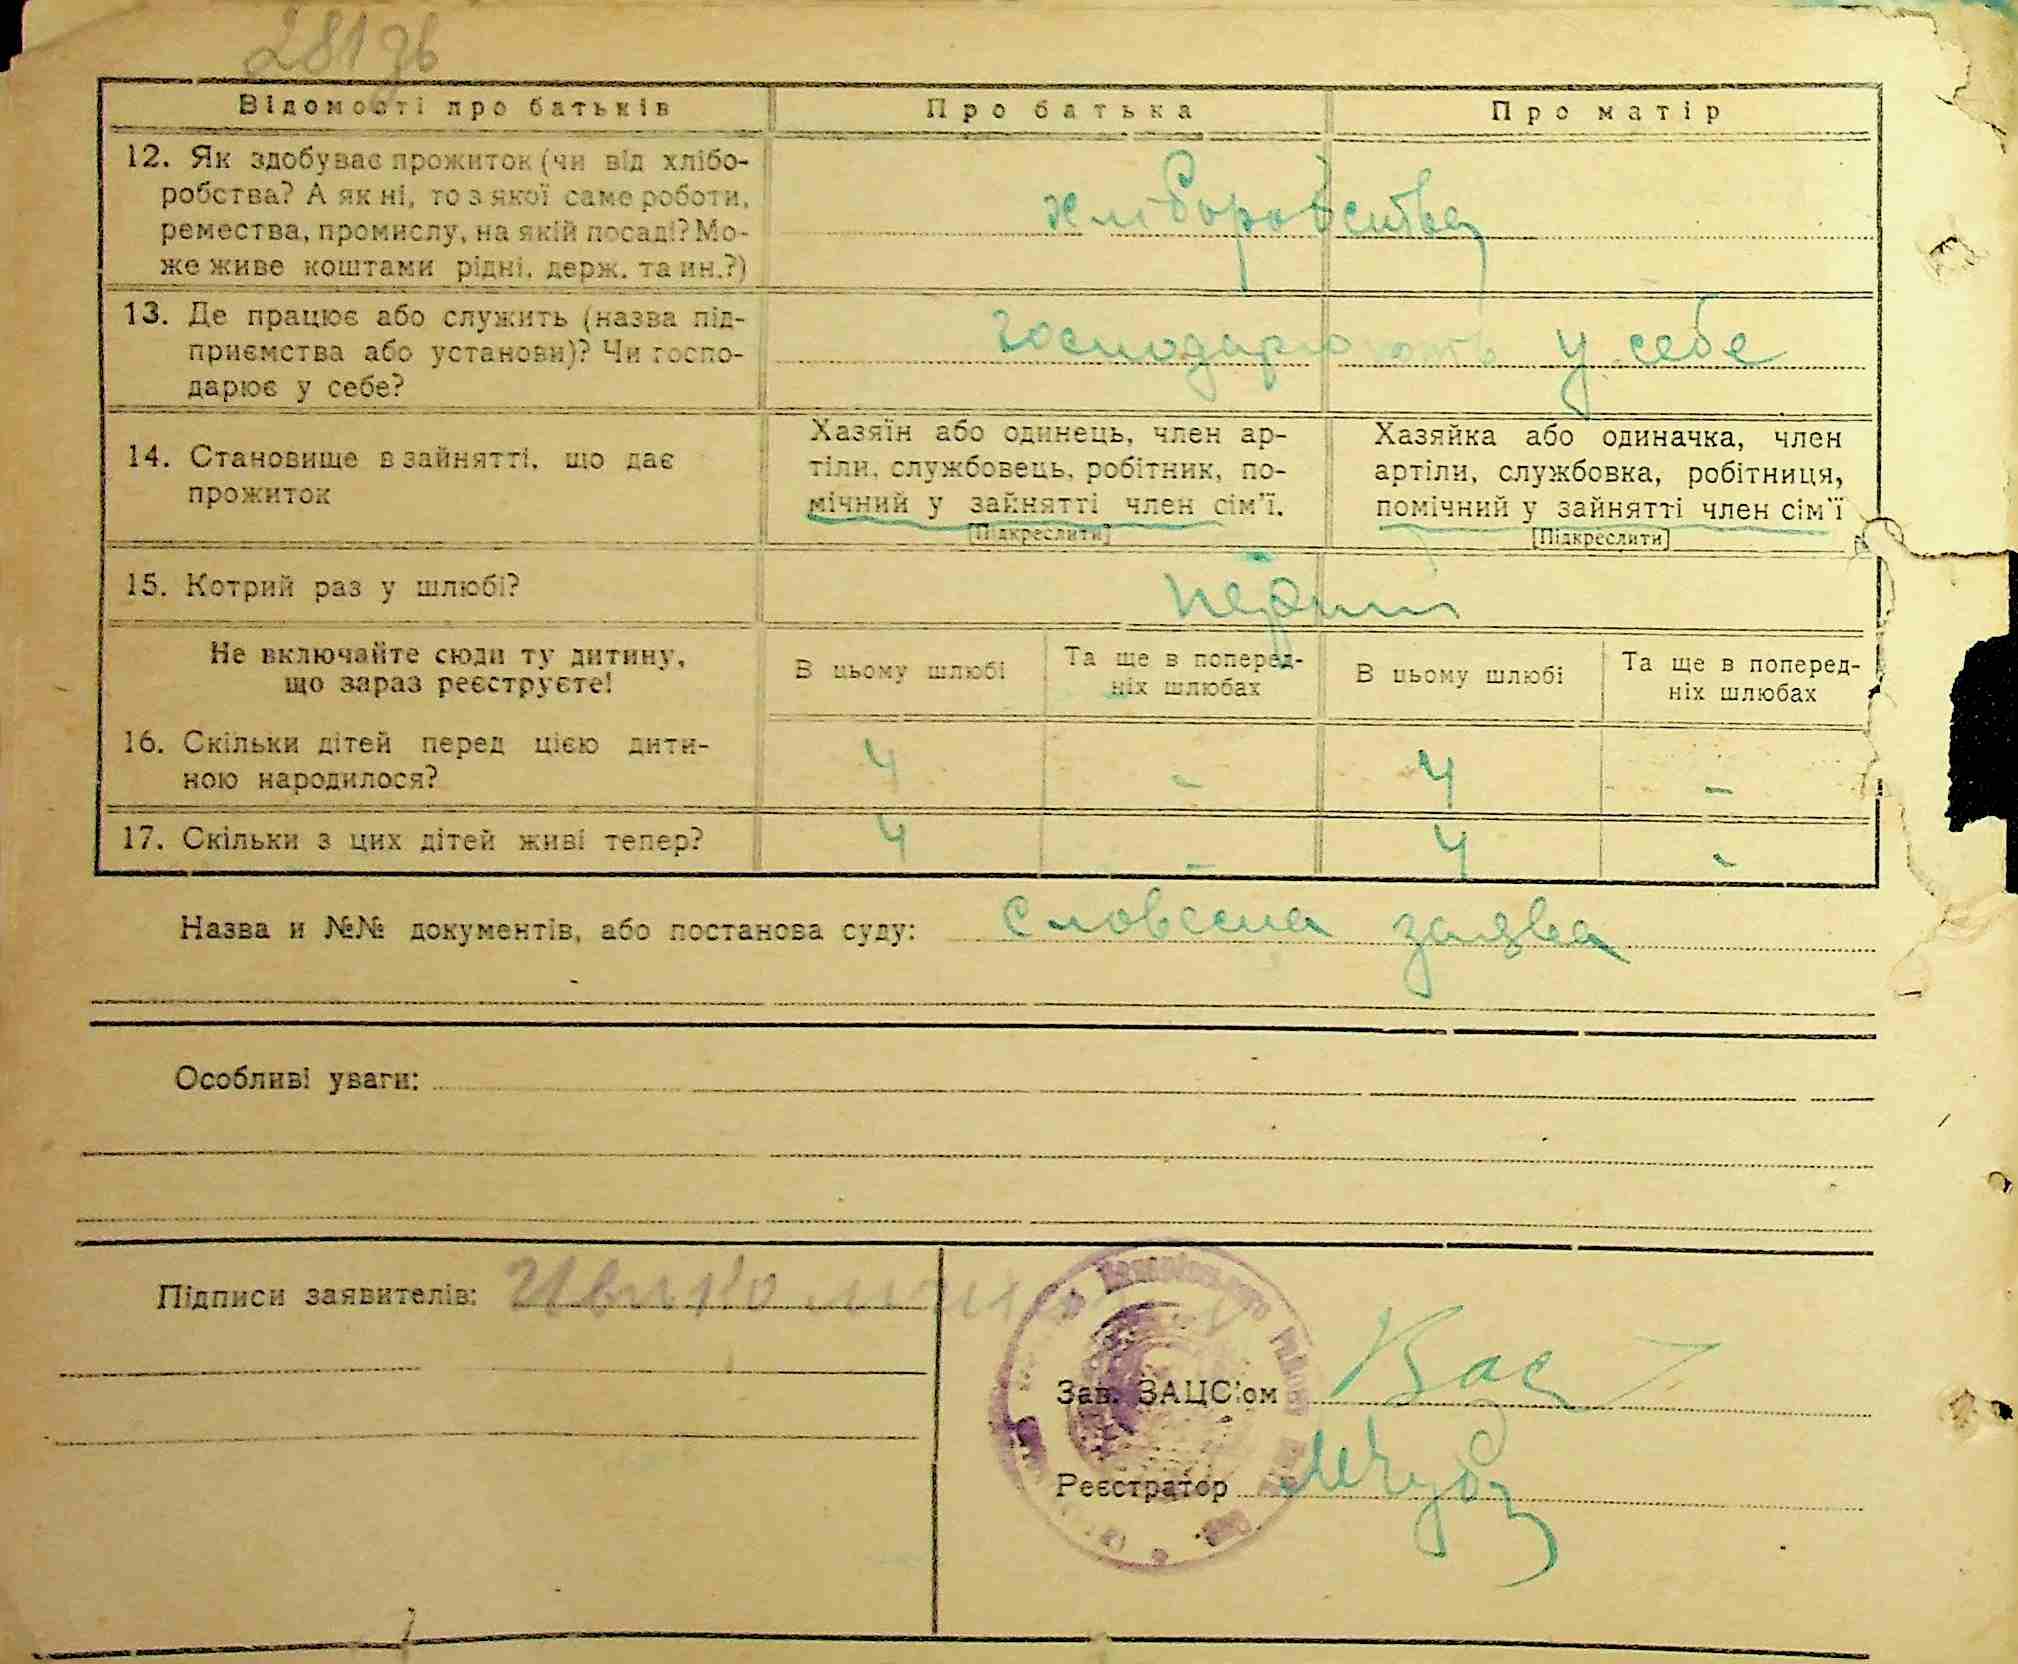 281 зв
Відомості про батьків
Про батька
Про матір
12. Як здобуває прожиток (чи від хлібо-
робства? А як ні, то з якої саме роботи,
ремества, промислу, на якій посаді? Мо-
же живе коштами рідні, держ. та ин.?)
хліборобства
13. Де працює або служить (назва під-
приємства або установи)? Чи госпо-
дарює у себе?
господарюють у себе
14. Становище в зайнятті, що дає
прожиток
Хазяїн або одинець, член ар-
тіли, службовець, робітник, по-
мічний у зайнятті член сім'ї.
[Підкреслити]
Хазяйка або одиначка, член
артіли, службовка, робітниця,
помічний у зайнятті член сім'ї
[Підкреслити]
15. Котрий раз у шлюбі?
перший
Не включайте сюди ту дитину,
що зараз реєструєте!
В цьому шлюбі
Та ще в поперед-
ніх шлюбах
В цьому шлюбі
Та ще в поперед-
ніх шлюбах
16. Скільки дітей перед цією дити-
ною народилося?
4 - 4 -
17. Скільки з цих дітей живі тепер?
4 - 4 -
Назва и №№ документів, або постанова суду: словесна заява
Особливі уваги:
Підписи заявителів:
Зав. ЗАЦС'ом
Реєстратор